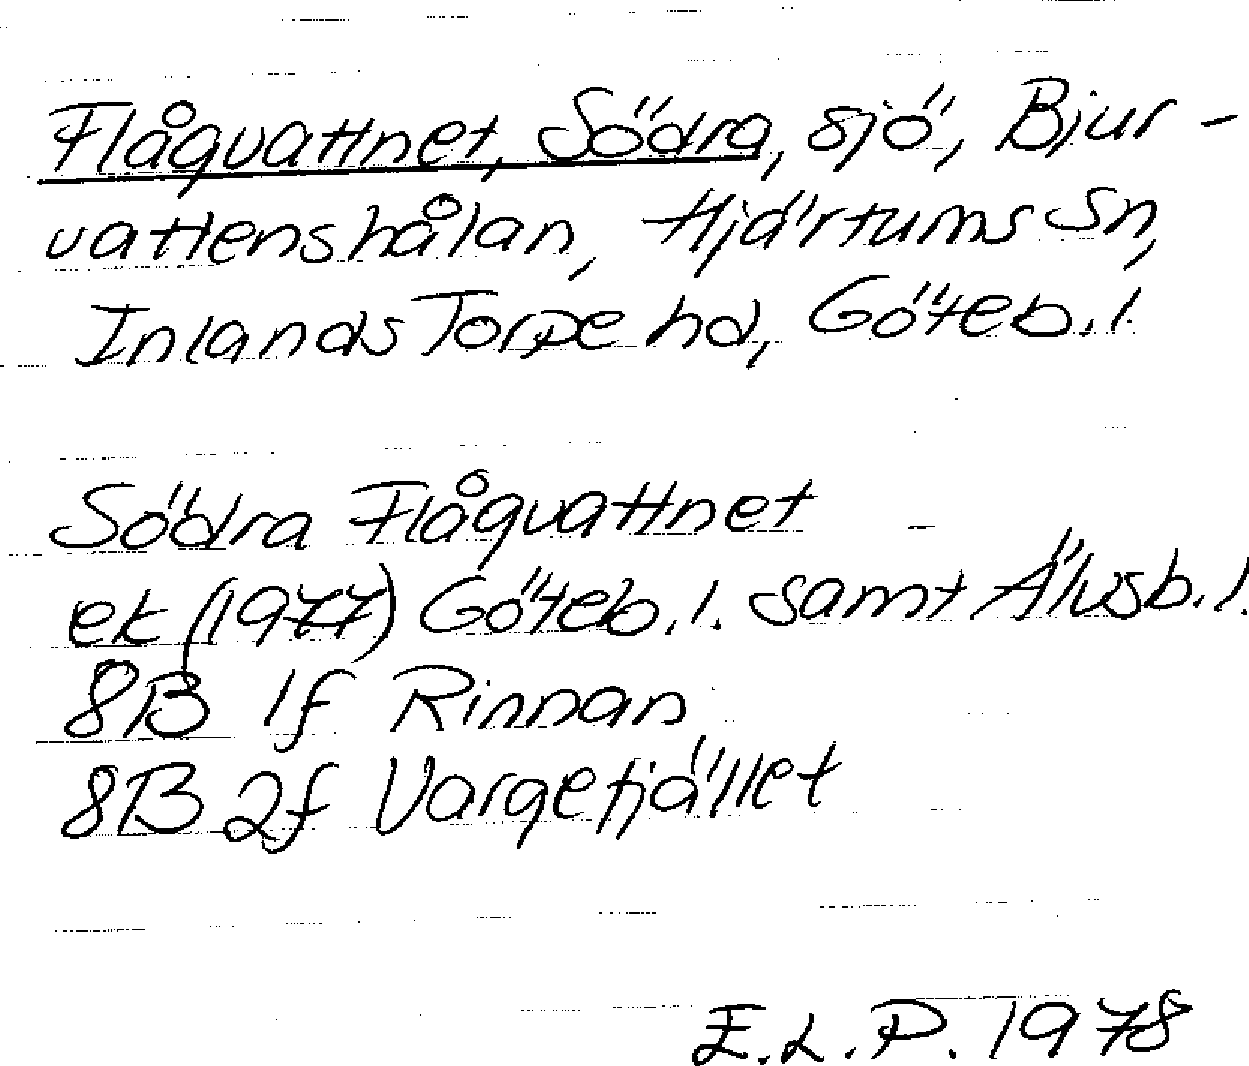 Flågvattnet, Södra, sjö, Bjur-
vattenshålan, Hjärtums sn,
Inlands Torpe hd, Göteb. l.
Södra Flågvattnet
ek (1977) Göteb. l. samt Älvsb. l.
8B 1f Rinnan
8B 2f Vargefjället
E. L. P. 1978